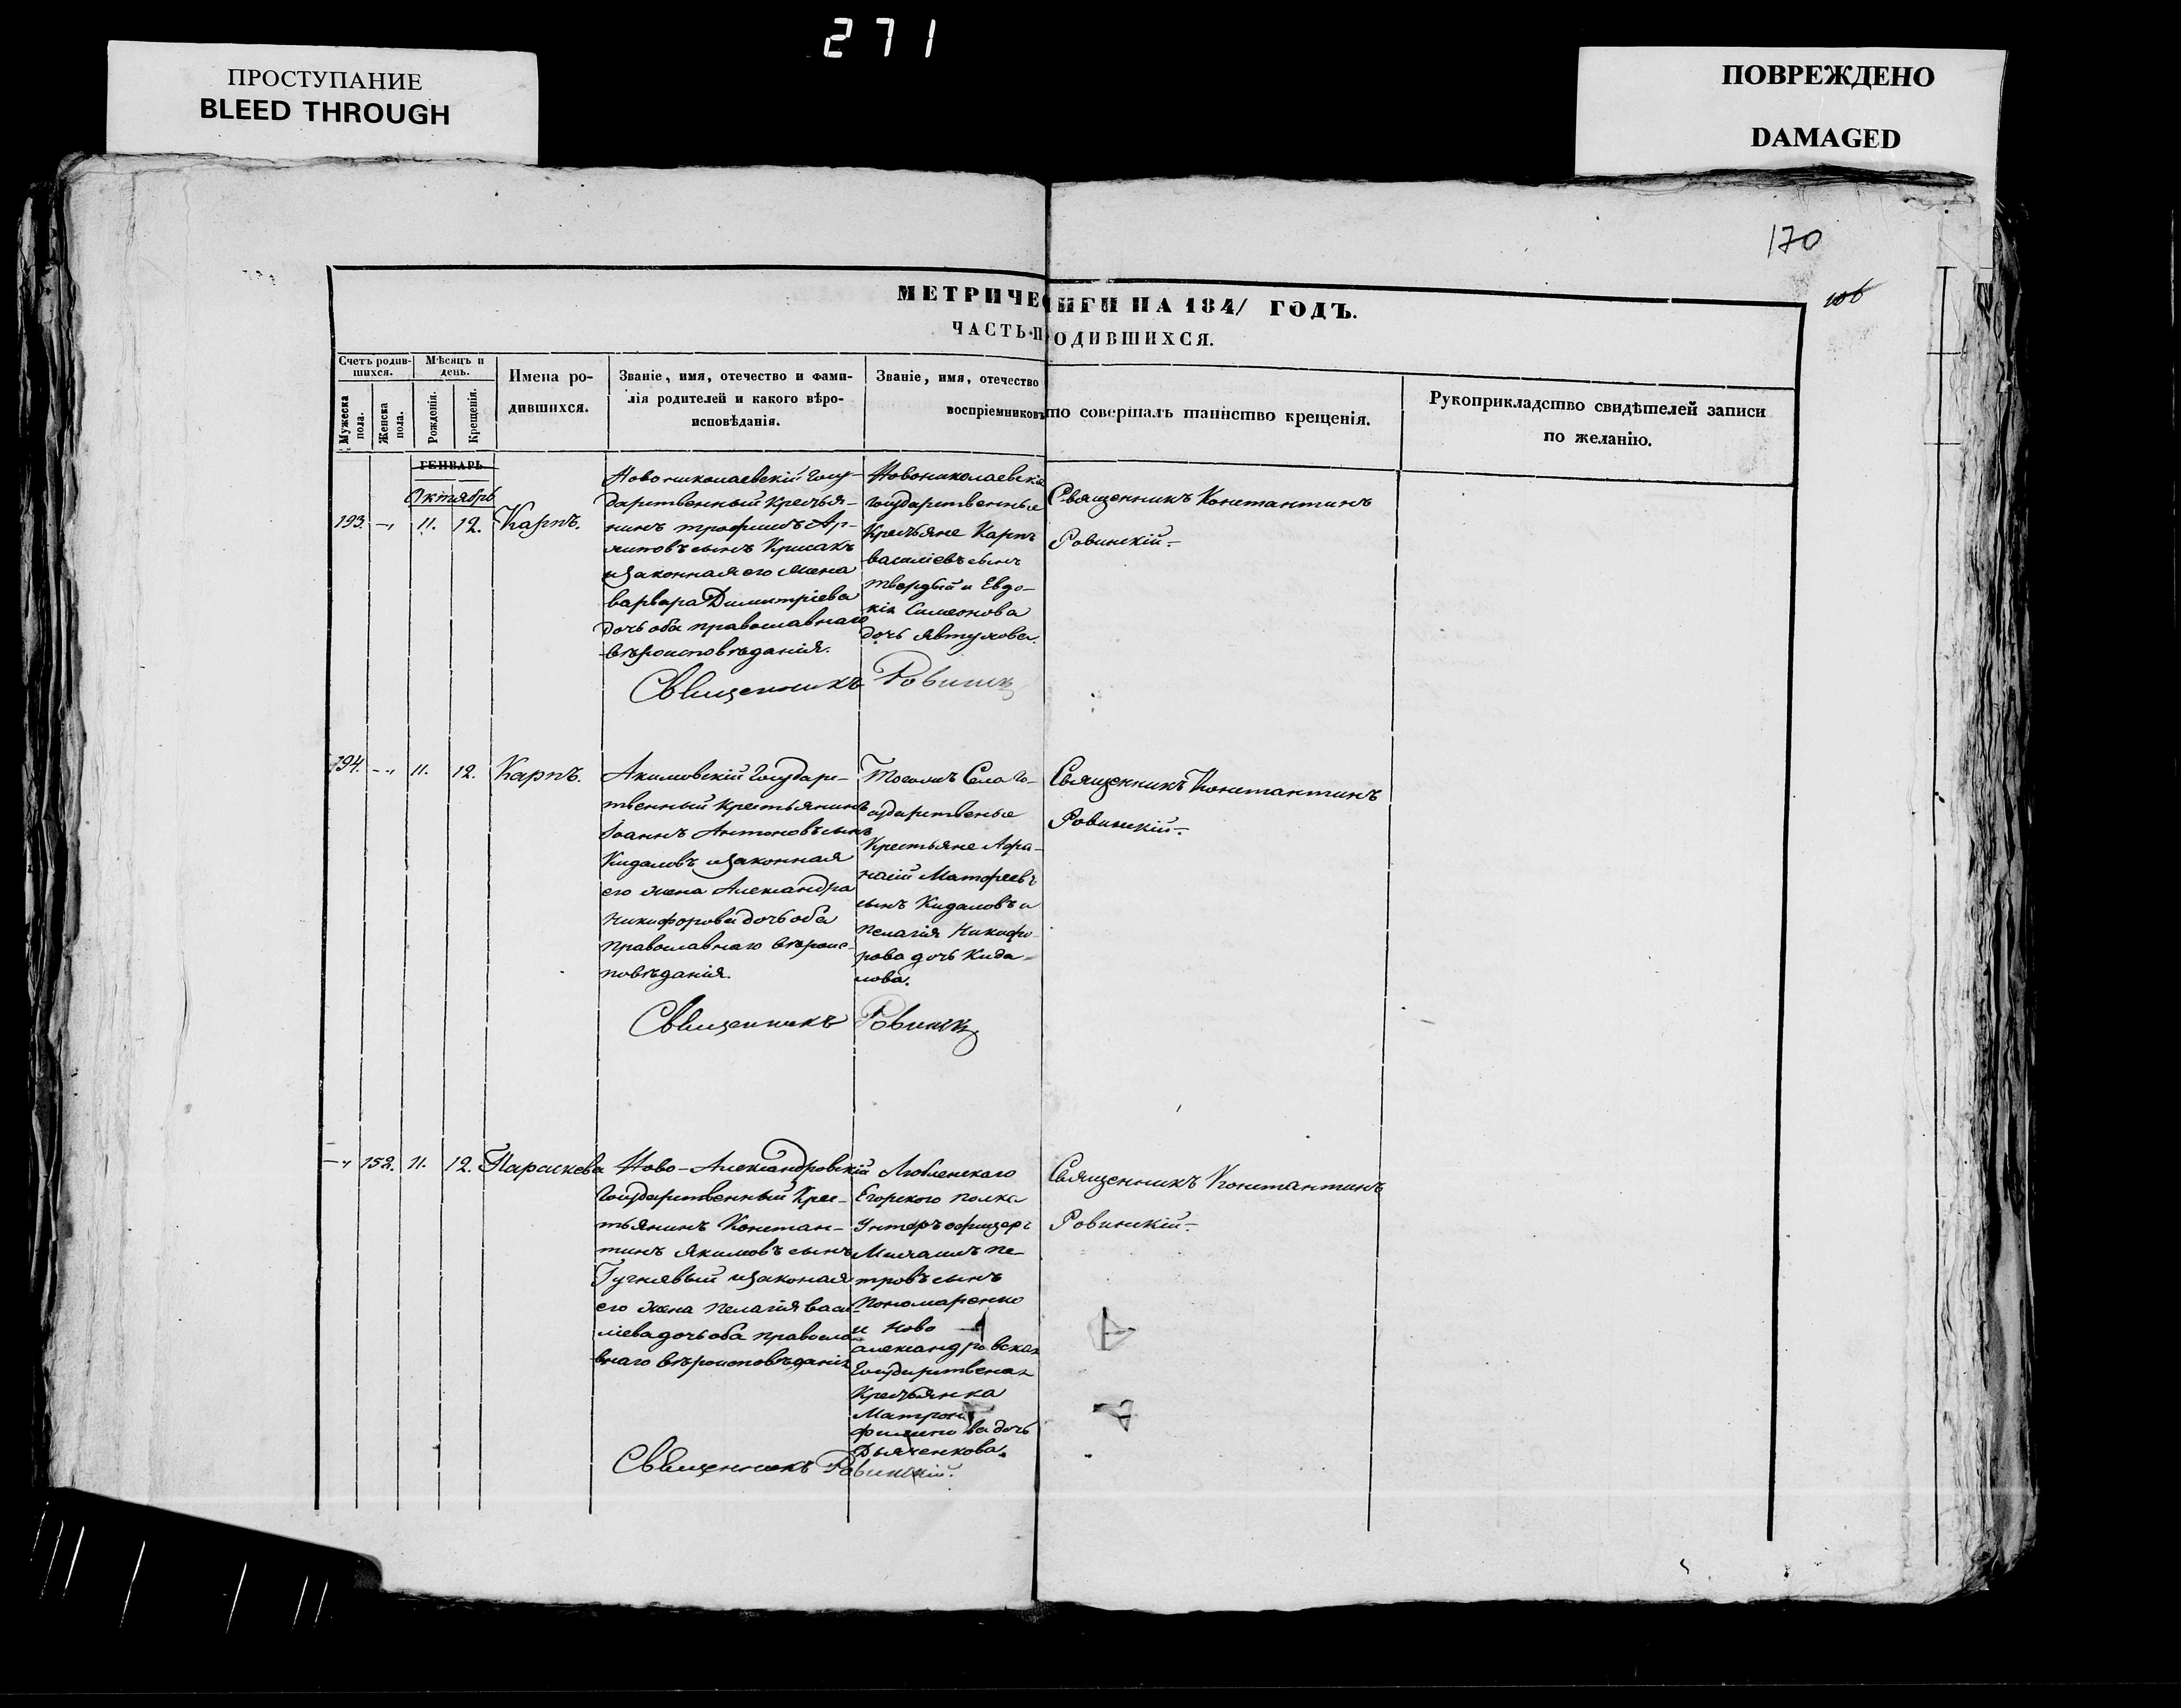 271
ПРОСТУПАНИЕ
BLEED THROUGH
ПОВРЕЖДЕНО
DAMAGED
170
МЕТРИЧЕ ИГИ НА 184/ ГОДЪ.
ЧАСТЬ П ОДИВШИХСЯ.
Счетъ родив-
шихся.
Мужеска
пола.
Женска
пола.
Мѣсяцъ и
день.
Рожденія.
Крещенія.
Имена ро-
дившихся.
Званіе, имя, отечество и фами-
лія родителей и какого вѣро-
исповѣданія.
Званіе, имя, отечество
воспріемниковъ
то совершалъ таинство крещенія.
Рукоприкладство свидѣтелей записи
по желанію.
ГЕНВАРЬ
Октябрь
193. 11. 12. Карпъ.
Новониколаевскій Госу-
дарственный Крестья-
нинъ Трофимъ Ар-
хиповъ сынъ Крисакъ
и законная его жена
Варвара Димитріева
дочь оба православнаго
вѣроисповѣданія.
Новониколаевскіе
Государственные
Крестьяне Карпъ
Василіевъ сынъ
Твердый и Евдо-
кія Симеонова
дочь Явтухова.
Священникъ Константинъ
Ровинскій
Священникъ Ровинскі
194. 11. 12. Карпъ.
Акимовскій Государс-
твенный Крестьянинъ
Іоаннъ Антоновъ сынъ
Кидаловъ и законная
его жена Александра
Никифорова дочь оба
Православнаго вѣроис-
повѣданія.
Тогожъ Села Го-
сударственые
Крестьяне Афа-
насій Матфеевъ
сынъ Кидаловъ и
Пелагія Никифо-
рова дочь Кида-
лова.
Священникъ Константинъ
Ровинскій
Священникъ Ровинскі
152. 11. 12. Параскева
Ново-Александровскій
Государственный Крес-
тьянинъ Констан-
тинъ Якимовъ сынъ
и законая
его жена Пелагія Васи-
ліева дочь оба правосла-
внаго вѣроисповѣданія
Егорского полка
Унтеръ офицеръ
Михаилъ Пе-
тровъ сынъ
Пономаренко
и Ново
александровская
Государственая
Крестьянка
Матрона
Филипова дочь
Дьяченкова.
Священникъ Константинъ
Ровинскій
Священникъ Ровинскій.